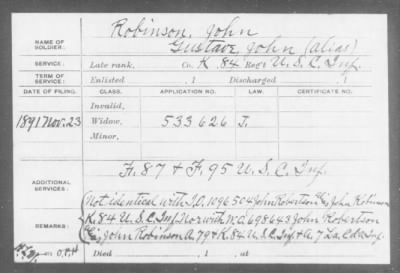 NAME OF SOLDIER: Robinson, John
Gustave, John (alias)
SERVICE: Late rank, Co. K, 84 Reg't U.S.C. Inf.
TERM OF SERVICE: Enlisted , 1 Discharged , 1
DATE OF FILING. CLASS. APPLICATION NO. LAW. CERTIFICATE NO.
Invalid,
1891 Nov. 23 Widow, 533626 J.
Minor,
ADDITIONAL SERVICES: H. 87 & F. 95 U.S.C. Inf.
REMARKS: (Not identical with I.O. 1096504 John Robertson John Robinson
K. 84 U.S.C. Inf. Nor with W.O. 698643 John Robertson
John Robinson A. 79 & K. 84 U.S.C. Inf. & A 7 La. Cold Inf.
Died , 1 , at